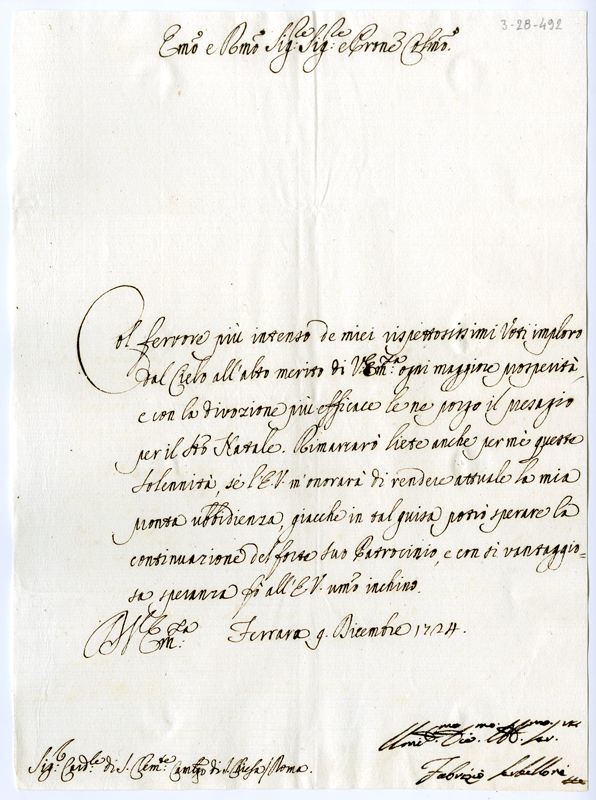 3-28-492
Emo e Rmo Sig:re Sig:re e Prone Colmo.
Col fervore più intenso de miei rispettosissimi Voti imploro
dal Cielo all'alto merito di V. Em:za ogni maggiore prosperità,
e con la divozione più efficace le ne porgo il presagio
per il Sto Natale. Rimarcarò liete anche per mè queste
solennità, sé l'E.V. m'onorarà di rendere attuale la mia
pronta ubbidienza, giacche in tal guisa potrò sperare la
continuazione del forte suo Patrocinio, e con sì vantaggio=
sa speranza fò all'E.V. umo inchino.
Di V. Em:za Ferrara 9. Dicembre 1724.
Umo: Dio: mo.
Sig:r Card:le di S. Clem:te Camlgo di S. Chiesa / Roma.
Fabrizio Serbelloni